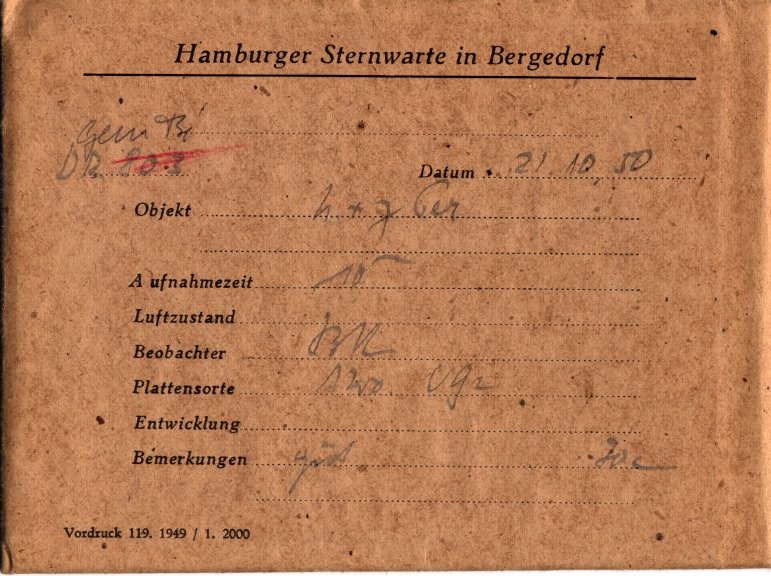 Hamburger Sternwarte in Bergedorf
DR
Datum 21.10.50
Objekt h +
Aufnahmezeit 10
Luftzustand
Beobachter
Plattensorte
Entwicklung
Bemerkungen gut
Vordruck 119. 1949 / 1. 2000